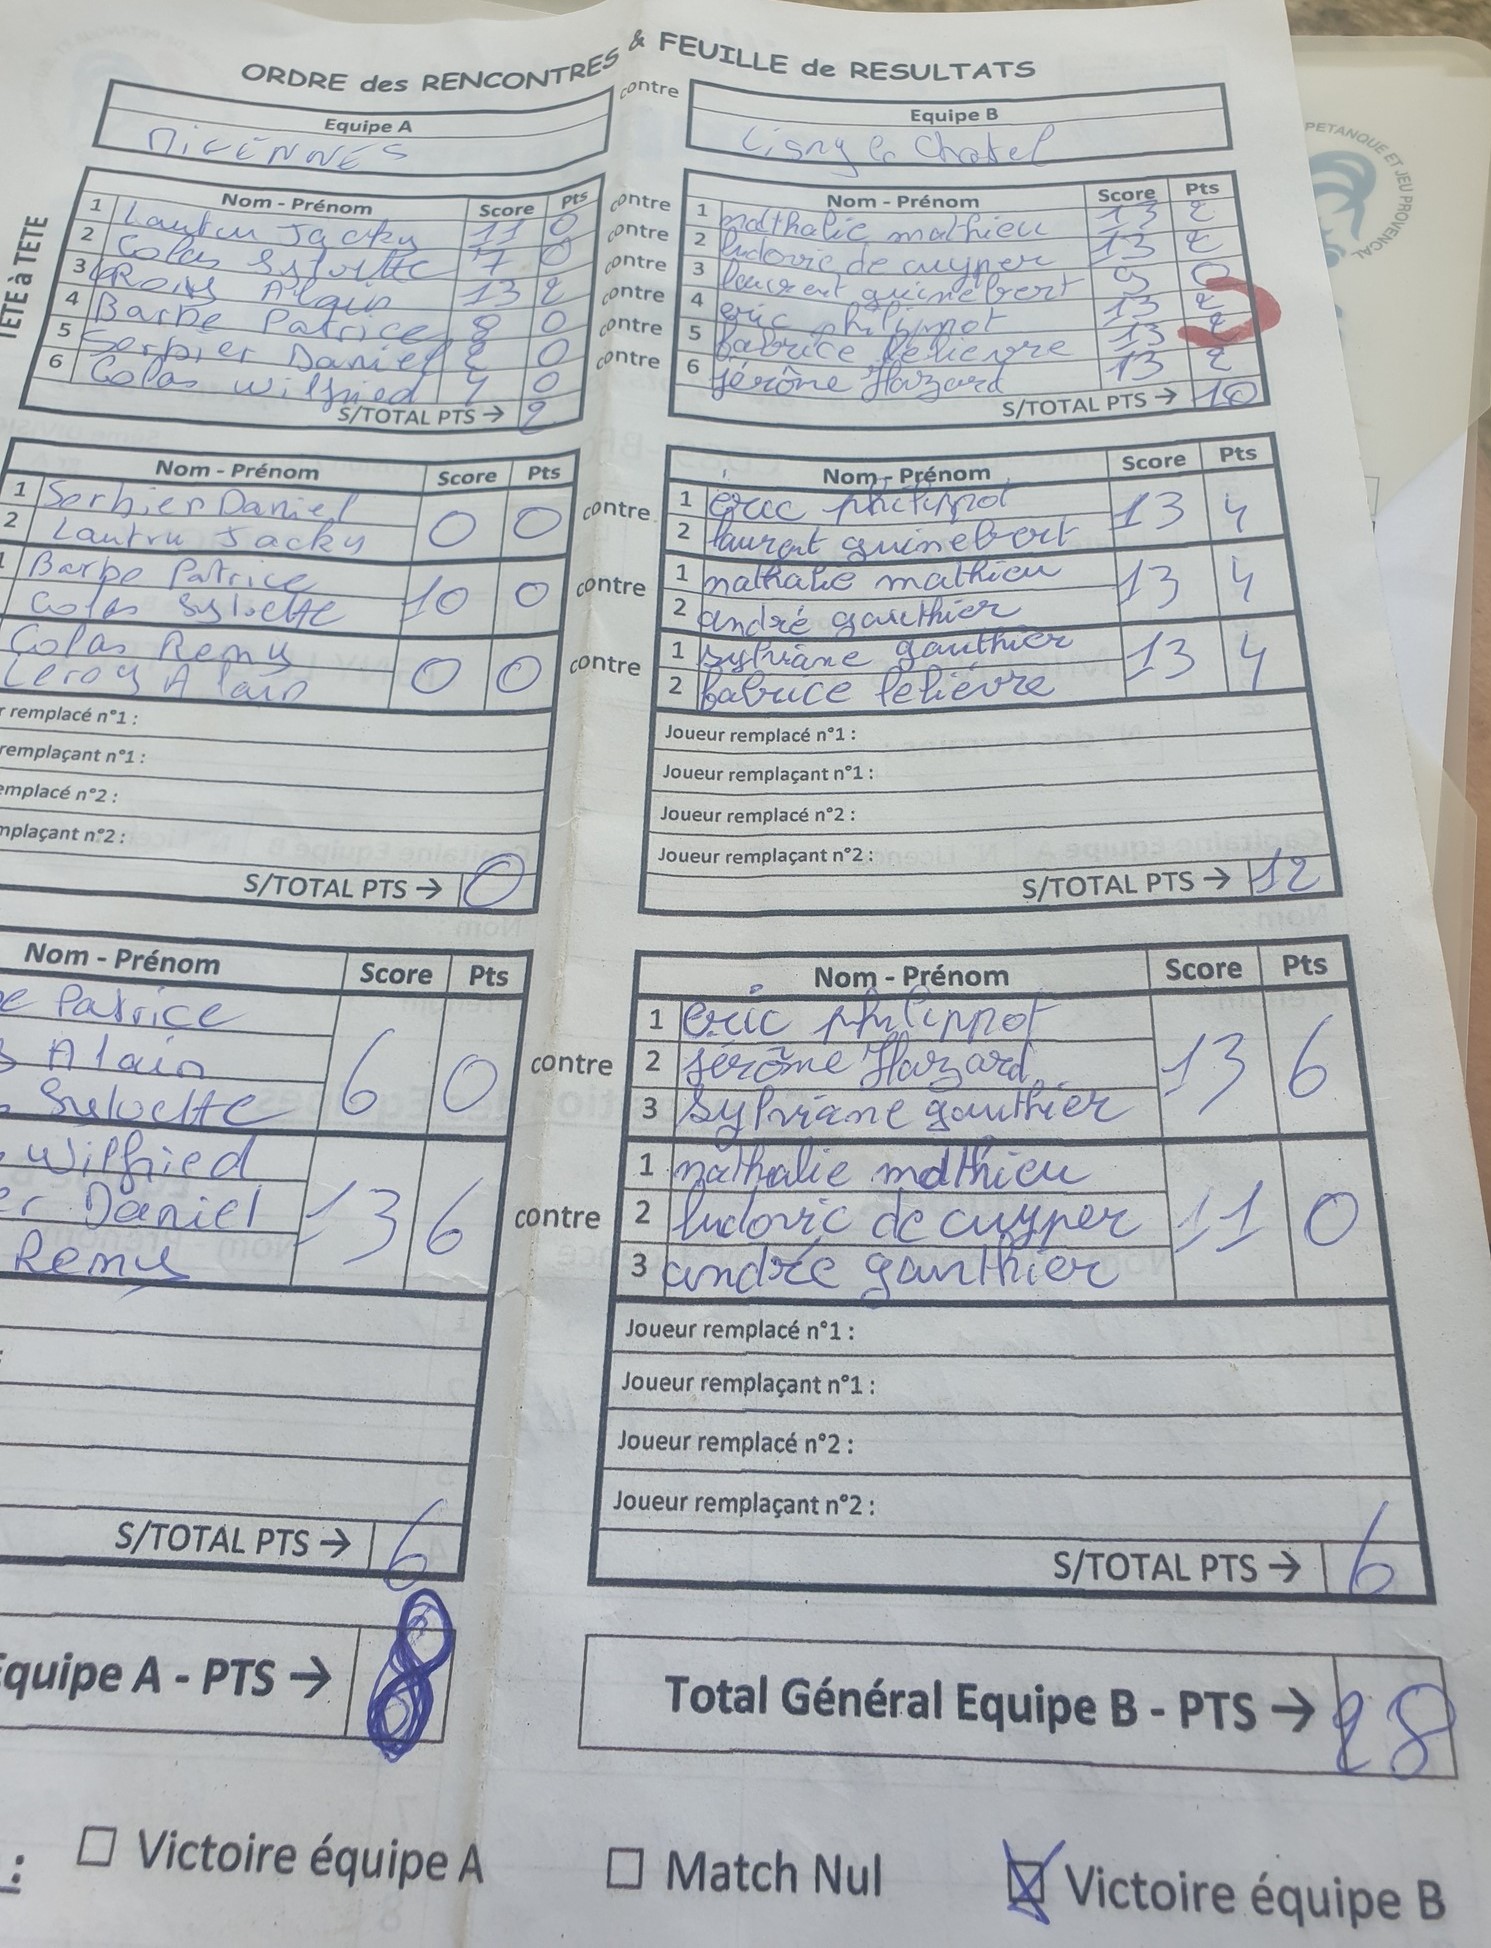 ORDRE des RENCONTRES & FEUILLE de RESULTATS
Equipe A contre Equipe B
MIGENNES Ligny le Chatel
TETE à TETE
Nom - Prénom Score Pts contre Nom - Prénom Score Pts
1 Lautru Jacky 11 0 contre 1 nathalie mathieu 13 2
2 Colas Sylvette 7 0 contre 2 ludovic de cuyper 13 2
3 Alain 13 2 contre 3 laurent guinebert 9 0
4 Barbe Patrice 8 0 contre 4 eric philippot 13 2
5 Sorbier Daniel 2 0 contre 5 fabrice lelievre 13 2
6 Colas Wilfried 4 0 6 jérôme Hazard 13 2
S/TOTAL PTS → 2 S/TOTAL PTS → 10
Nom - Prénom Score Pts Nom - Prénom Score Pts
1 Sorbier Daniel 0 0 contre 1 eric philippot 13 4
2 Lautru Jacky 2 laurent guinebert
Barbe Patrice 10 0 contre 1 nathalie mathieu 13 4
Colas Sylvette 2 andré gauthier
Colas Remy 0 0 contre 1 sylviane gauthier 13 4
Leroy Alain 2 fabrice lelièvre
r remplacé n°1 : Joueur remplacé n°1 :
remplaçant n°1 : Joueur remplaçant n°1 :
emplacé n°2 : Joueur remplacé n°2 :
mplaçant n°2 : Joueur remplaçant n°2 :
S/TOTAL PTS → 0 S/TOTAL PTS → 12
Nom - Prénom Score Pts Nom - Prénom Score Pts
e Patrice 1 eric philippot
s Alain 6 0 contre 2 jérôme Hazard 13 6
Sylvette 3 Sylviane gauthier
Wilfried 1 nathalie mathieu
er Daniel 13 6 contre 2 ludovic de cuyper 11 0
Remy 3 andré gauthier
Joueur remplacé n°1 :
Joueur remplaçant n°1 :
Joueur remplacé n°2 :
Joueur remplaçant n°2 :
S/TOTAL PTS → 6 S/TOTAL PTS → 6
Equipe A - PTS → 8 Total Général Equipe B - PTS → 28
: Victoire équipe A Match Nul Victoire équipe B
PETANQUE ET JEU PROVENCAL